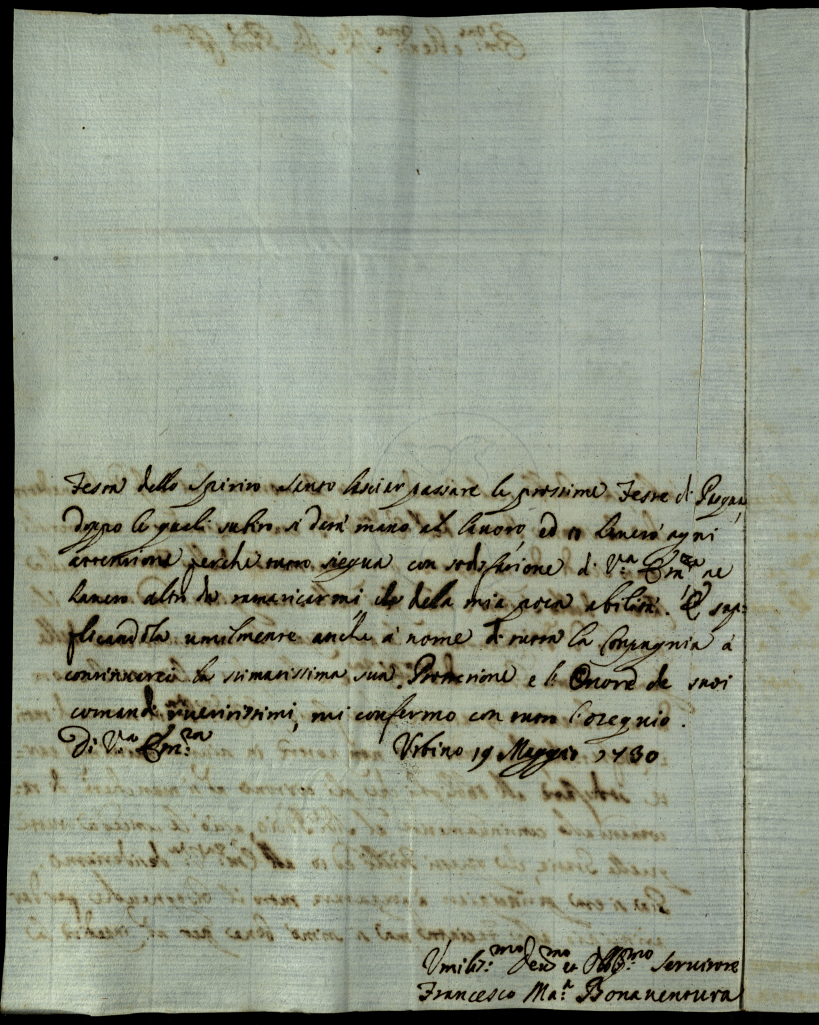 Festa dello Spirito Santo lasciar passare le prossime Feste di Pasqua
doppo le quali subito si darà mano al lavoro, ed io l'anerò ogni
attenzione perche tutto siegua con sodisfazione di V.ra Em.za ne
altro da ramaricarmi che della mia poca abilità. E sup-
plicandola umilmente anche à nome di tutta la Compagnia à
continuarci la stimatissima sua Protezione e l'Onore de suoi
comandi riveritissimi, mi confermo con tutto l'ozequio.
Di V.ra Em.za Urbino 19 Maggio 1730
Umiliss.mo Dev.mo et Obblig.mo Servitore
Francesco Ma.a Bonaventura